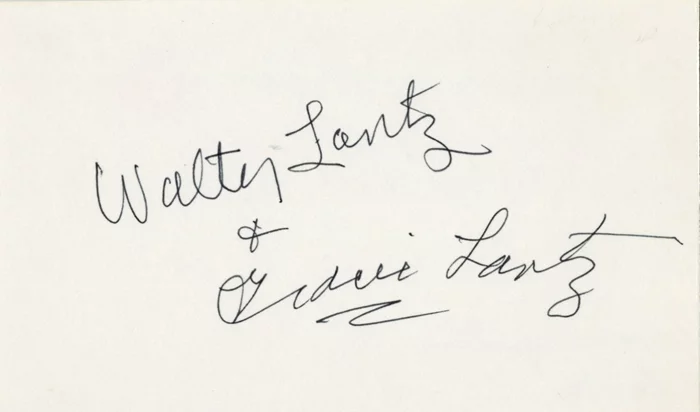 Walter Lantz
&
Gracie Lantz